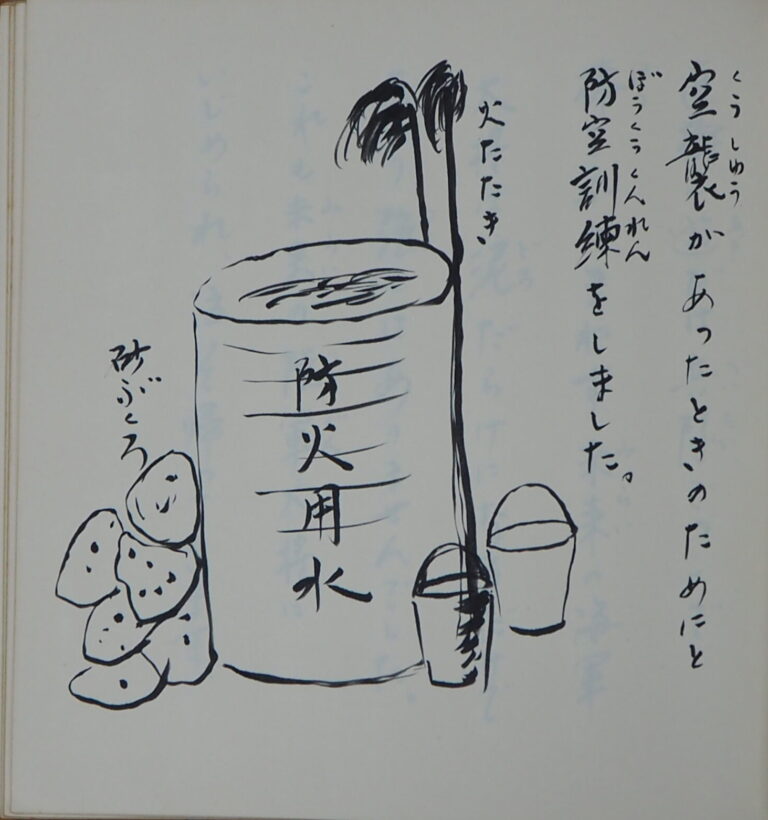 くうしゅう
空襲があったときのためにと
ぼうくうくんれん
防空訓練をしました。
火たたき
防火用水
砂ぶくろ